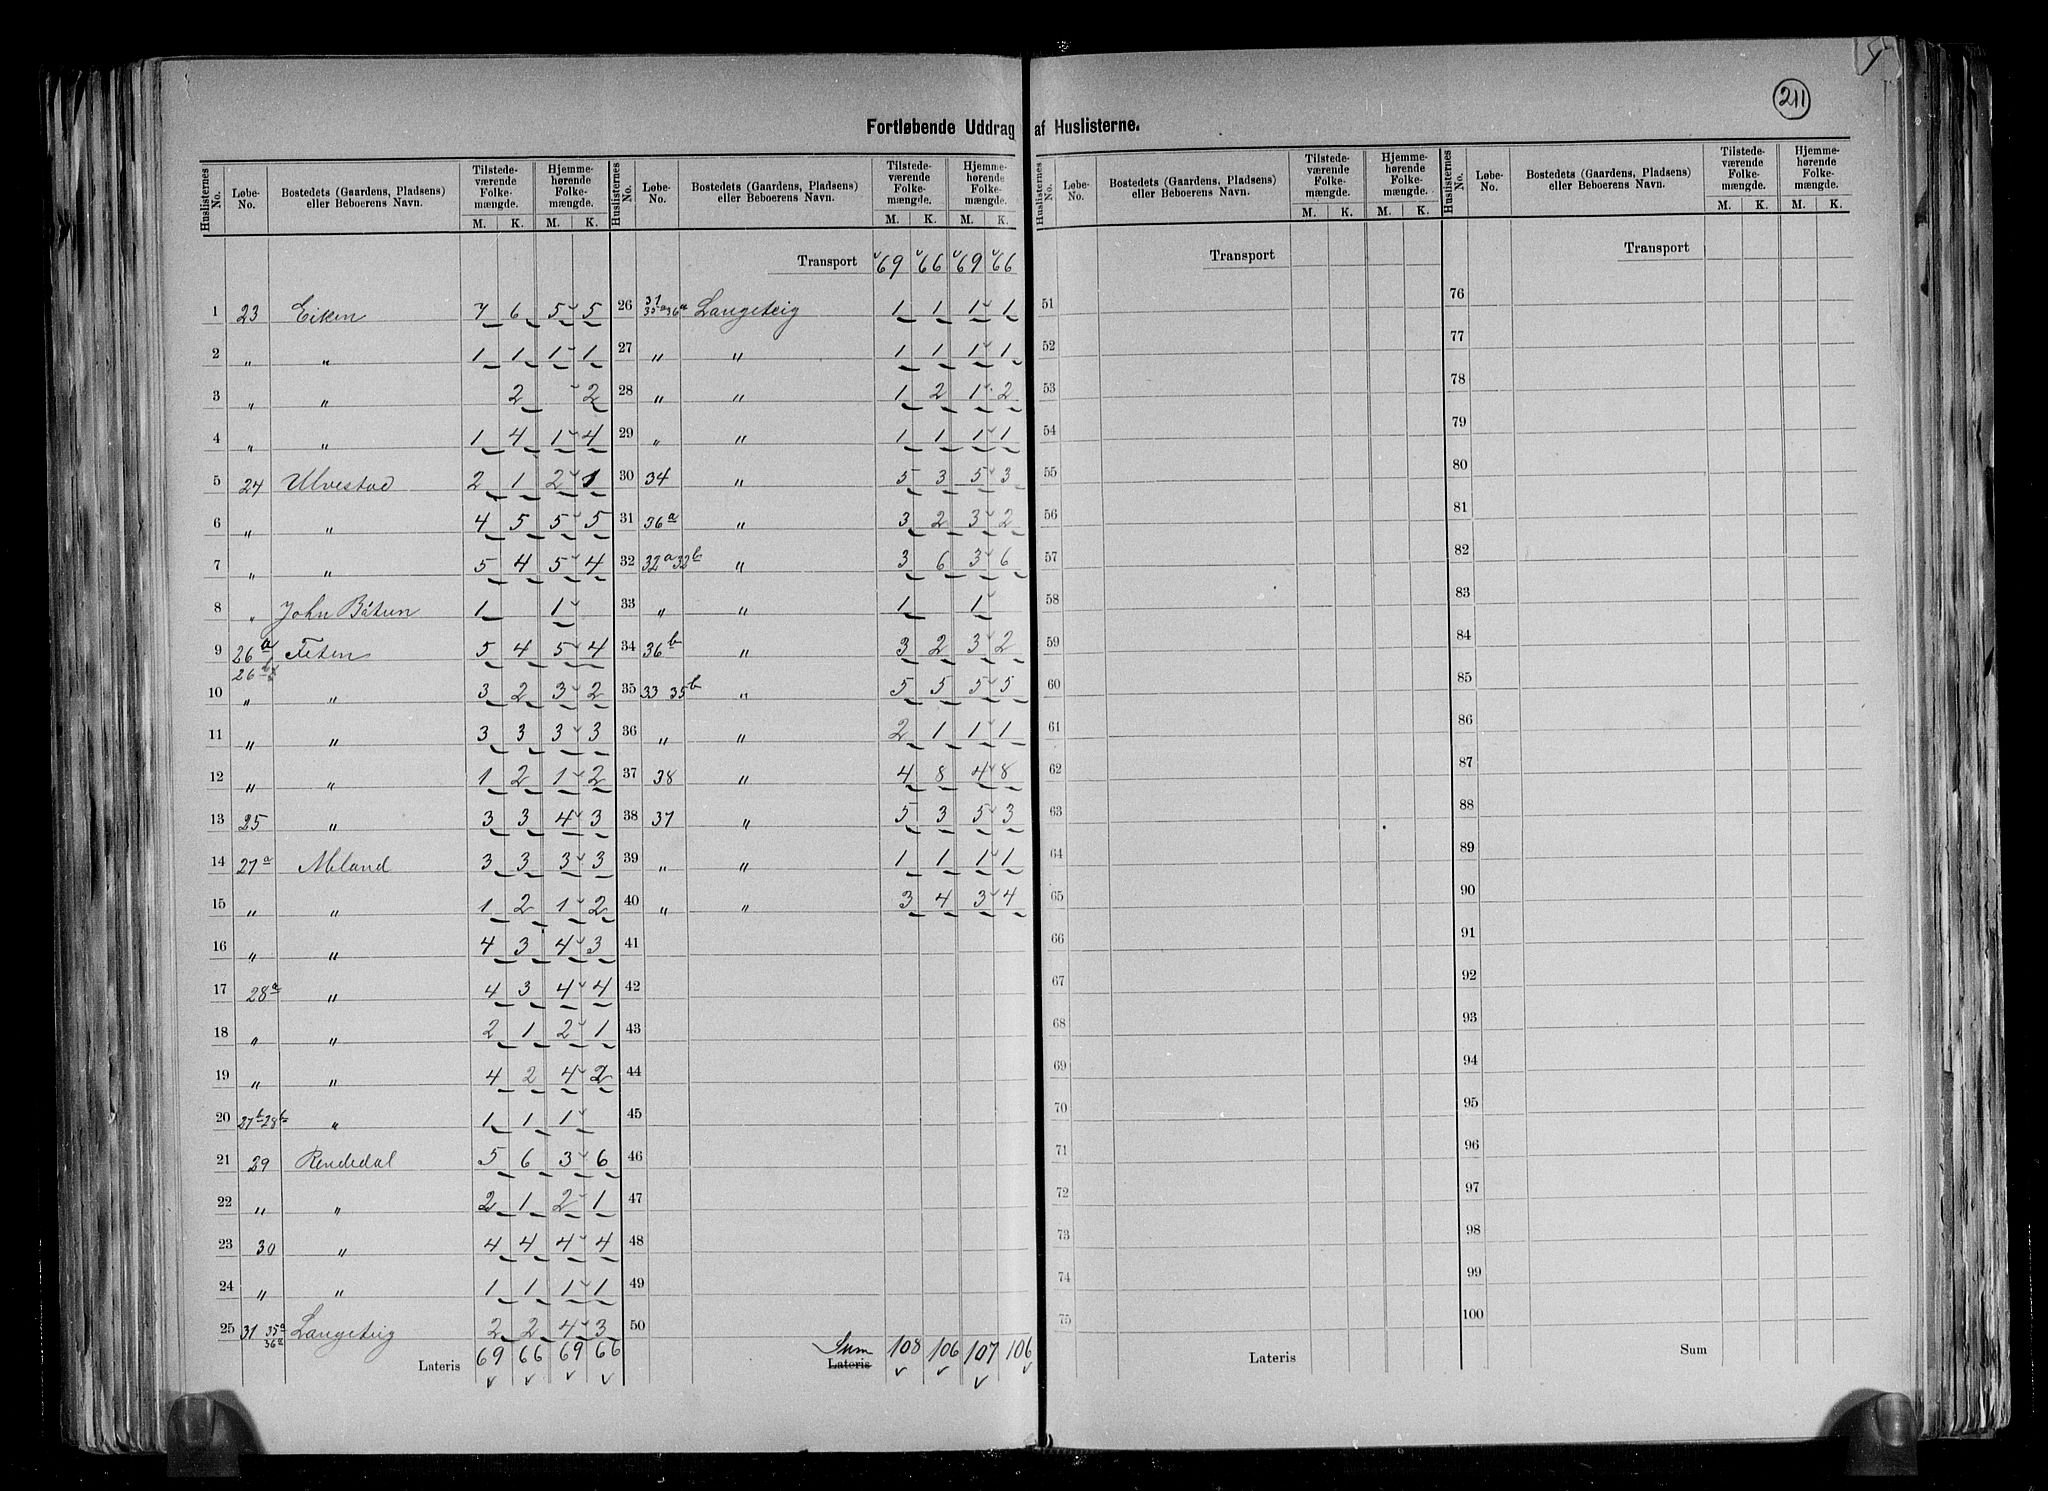 211
Fortløbende Uddrag af Huslisterne.
Huslisternes No. | Løbe-No. | Bostedets (Gaardens, Pladsens) eller Beboerens Navn. | Tilstedeværende Folkemængde. M. K. | Hjemmehørende Folkemængde. M. K.
1 23 Eiken 7 6 5 5
2 " " 1 1 1 1
3 " " 2 2
4 " " 1 4 1 4
5 24 Ulvestad 2 1 2 1
6 " " 4 5 5 5
7 " " 5 4 5 4
8 " John Båtun 1 1
9 26a Feten 5 4 5 4
10 " " 3 2 3 2
11 " " 3 3 3 3
12 " " 1 2 1 2
13 25 " 3 3 4 3
14 27a Meland 3 3 3 3
15 " " 1 2 1 2
16 " " 4 3 4 3
17 28a " 4 3 4 4
18 " " 2 1 2 1
19 " " 4 2 4 2
20 27b 28b " 1 1 1
21 29 Rendedal 5 6 3 6
22 " " 2 1 2 1
23 30 " 4 4 4 4
24 " " 1 1 1 1
25 31 35a 36a Langeteig 2 2 4 3
Lateris 69 66 69 66
Huslisternes No. | Løbe-No. | Bostedets (Gaardens, Pladsens) eller Beboerens Navn. | Tilstedeværende Folkemængde. M. K. | Hjemmehørende Folkemængde. M. K.
Transport 69 66 69 66
26 31 35a 36a Langeteig 1 1 1 1
27 " " 1 1 1 1
28 " " 1 2 1 2
29 " " 1 1 1 1
30 34 " 5 3 5 3
31 36a " 3 2 3 2
32 32a 32b " 3 6 3 6
33 " " 1 1
34 36b " 3 2 3 2
35 33 35b " 5 5 5 5
36 " " 2 1 1 1
37 38 " 4 8 4 8
38 37 " 5 3 5 3
39 " " 1 1 1 1
40 " " 3 4 3 4
41
42
43
44
45
46
47
48
49
50
Sum Lateris 108 106 107 106
Huslisternes No. | Løbe-No. | Bostedets (Gaardens, Pladsens) eller Beboerens Navn. | Tilstedeværende Folkemængde. M. K. | Hjemmehørende Folkemængde. M. K.
Transport
51
52
53
54
55
56
57
58
59
60
61
62
63
64
65
66
67
68
69
70
71
72
73
74
75
Lateris
Huslisternes No. | Løbe-No. | Bostedets (Gaardens, Pladsens) eller Beboerens Navn. | Tilstedeværende Folkemængde. M. K. | Hjemmehørende Folkemængde. M. K.
Transport
76
77
78
79
80
81
82
83
84
85
86
87
88
89
90
91
92
93
94
95
96
97
98
99
100
Sum